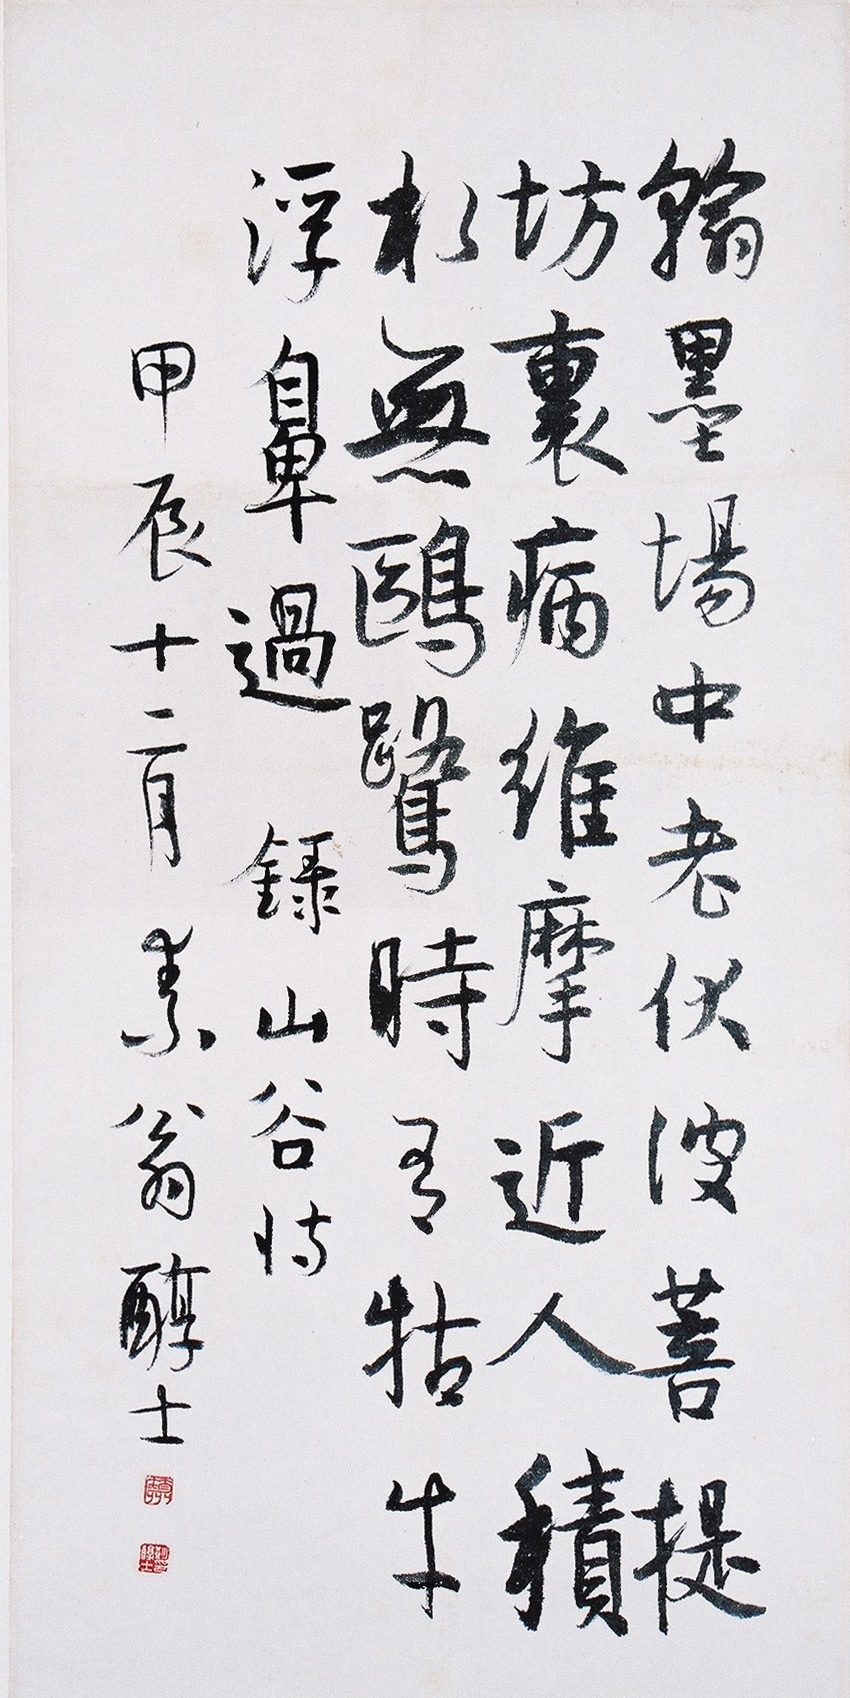 翰墨場中老伏波菩提
坊裏病維摩近人積
水無鷗鷺時有牯牛
浮鼻過 錄山谷詩
甲辰十二月素翁醇士